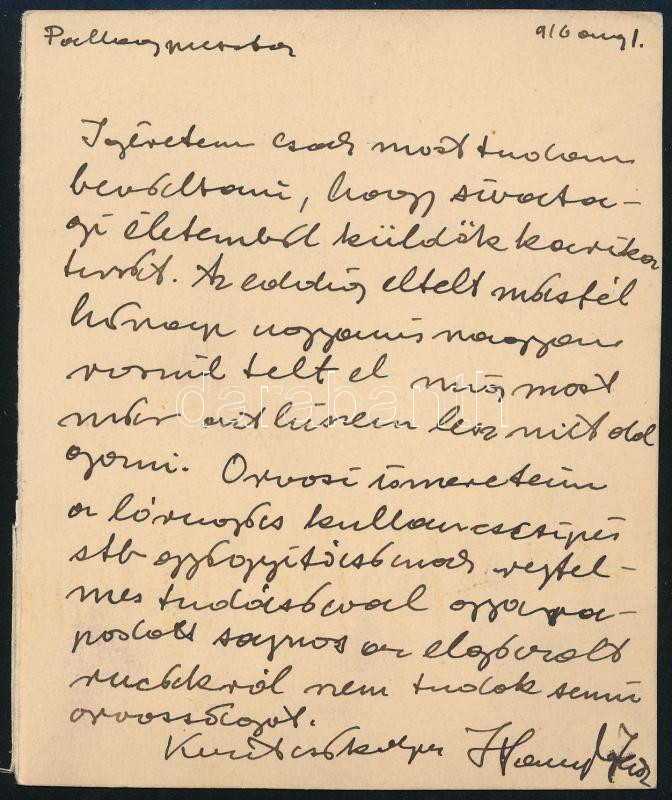 916 aug 1.
Igéretem csak most tudom
beváltani, hogy sivata-
gi életemből küldök karika
turát. Az eddig eltelt másfél
hónap ugyanis nagyon
rosszul telt el míg most
már azt hiszem lesz mit dol
gozni. Orvosi ismereteim
a lórugás kullancscsipés
stb gyógyításának rejtel-
mes tudásával gyara-
podott sajnos az elgázolt
rucákról nem tudok semmi
orvosságot.
darabanth